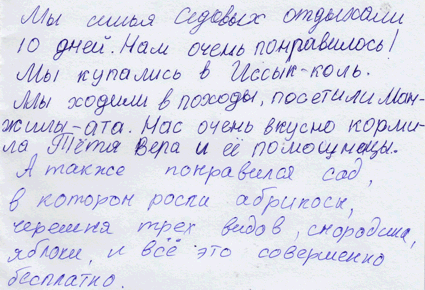 Мы семья Седовых отдыхали
10 дней. Нам очень понравилось!
Мы купались в Иссык-коль.
Мы ходили в походы, посетили Ман-
жилы-ата. Нас очень вкусно корми-
ла Тётя Вера и её помощницы.
А также понравился сад,
в котором росли абрикосы,
черешня трех видов, смородина,
яблоки, и всё это совершенно
бесплатно.